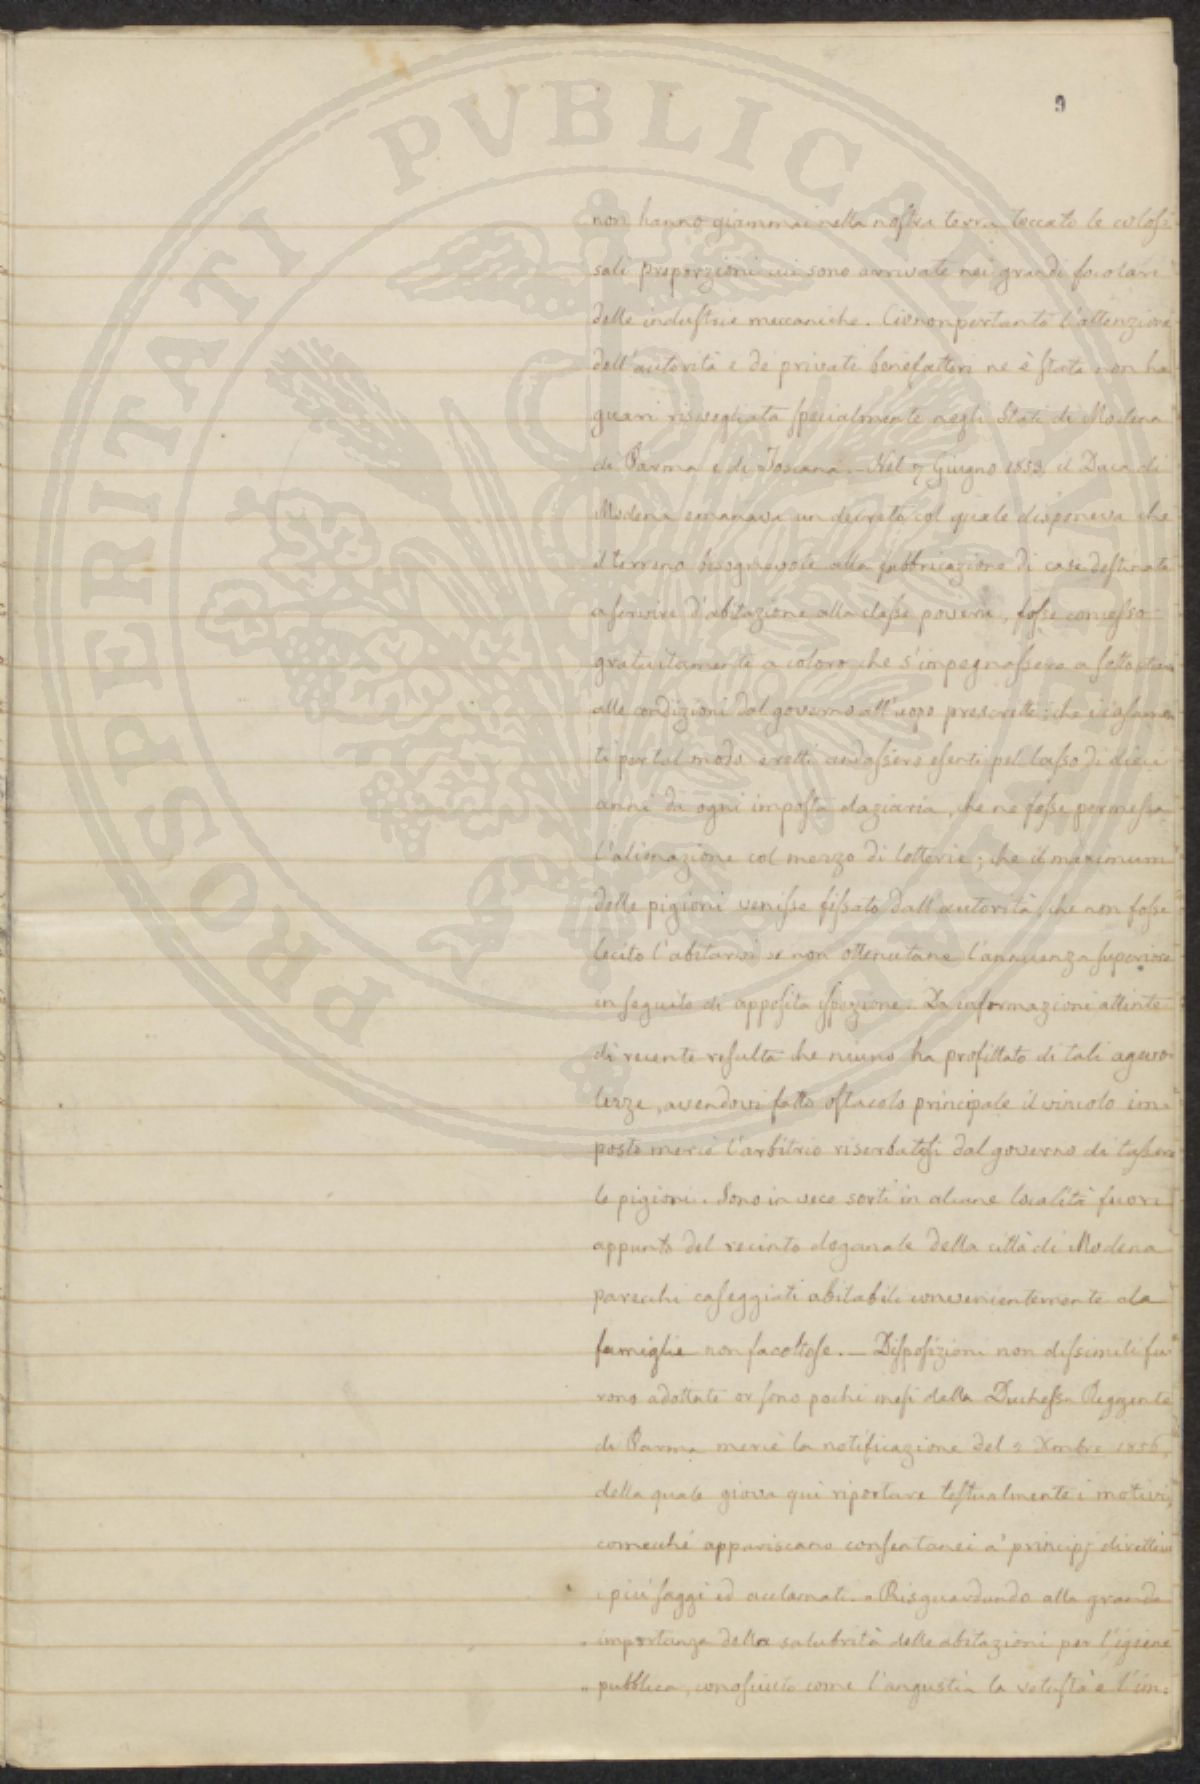 9
non hanno giammai nella nostra terra toccato le colos=
sali proporzioni cui sono arrivate nei grandi focolari
delle industrie meccaniche. Ciononpertanto l'attenzione
dell'autorità e de' privati benefattori ne è stata non ha
guari risvegliata specialmente negli Stati di Modena
di Parma e di Toscana. — Nel 7 Giugno 1853 il Duca di
Modena emanava un decreto, col quale disponeva che
il terreno bisognevole alla fabbricazione di case destinate
a servire d'abitazione alla classe povera, fosse concesso
gratuitamente a coloro che s'impegnassero a
alle condizioni dal governo all'uopo prescritte; che i casamen
ti per tal modo eretti andassero esenti pel lasso di dieci
anni da ogni imposta daziaria, che ne fosse permessa
l'alienazione col mezzo di lotterie; che il maximum
delle pigioni venisse fissato dall'autorità, che non fosse
lecito l'abitarvi se non ottenutane l'annuenza superiore
in seguito di apposita ispezione. Da informazioni attinte
di recente resulta che niuno ha profittato di tali agevo=
lezze, avendovi fatto ostacolo principale il vincolo im=
posto mercè l'arbitrio riserbatosi dal governo di tassare
le pigioni. Sono in vece sorti in alcune località fuori
appunto del recinto doganale della città di Modena
parecchi caseggiati abitabili convenientemente da
famiglie non facoltose. — Disposizioni non dissimili fu=
rono adottate or sono pochi mesi dalla Duchessa Reggente
di Parma mercè la notificazione del 2 Xmbre 1856,
della quale giova qui riportare testualmente i motivi,
comecché appariscano consentanei a' principj direttivi
i più saggi ed acclamati. „ Risguardando alla grande
„ importanza della salubrità delle abitazioni per l'igiene
„ pubblica, conosciuto come l'angustia la vetustà e l'im=
PROSPERITATI PVBLICAE AVGENDAE